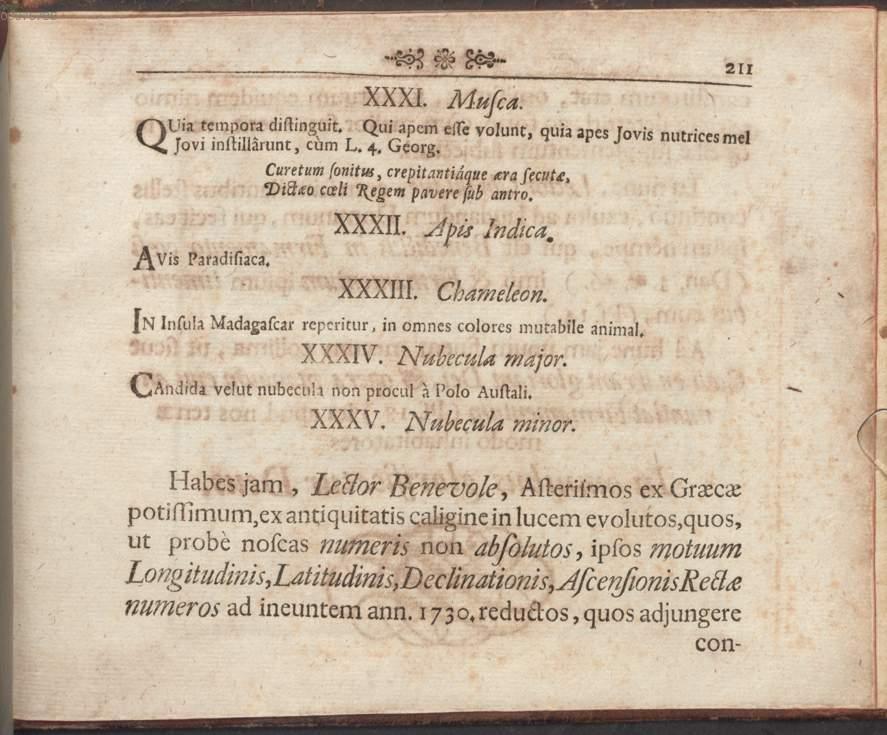 211
XXXI. Muſca.
QUia tempora diſtinguit. Qui apem eſſe volunt, quia apes Jovis nutrices mel
Jovi inſtillârunt, cùm L. 4. Georg.
Curetum ſonitus, crepitantiáque æra ſecutæ,
Dictæo cœli Regem pavere ſub antro.
XXXII. Apis Indica.
AVis Paradiſiaca.
XXXIII. Chameleon.
IN Inſula Madagaſcar reperitur, in omnes colores mutabile animal.
XXXIV. Nubecula major.
CAndida velut nubecula non procul à Polo Auſtali.
XXXV. Nubecula minor.
Habes jam, Lector Benevole, Aſteriſmos ex Græcæ
potiſſimum, ex antiquitatis caligine in lucem evolutos, quos,
ut probè noſcas numeris non abſolutos, ipſos motuum
Longitudinis, Latitudinis, Declinationis, Aſcenſionis Rectæ
numeros ad ineuntem ann. 1730. reductos, quos adjungere
con-